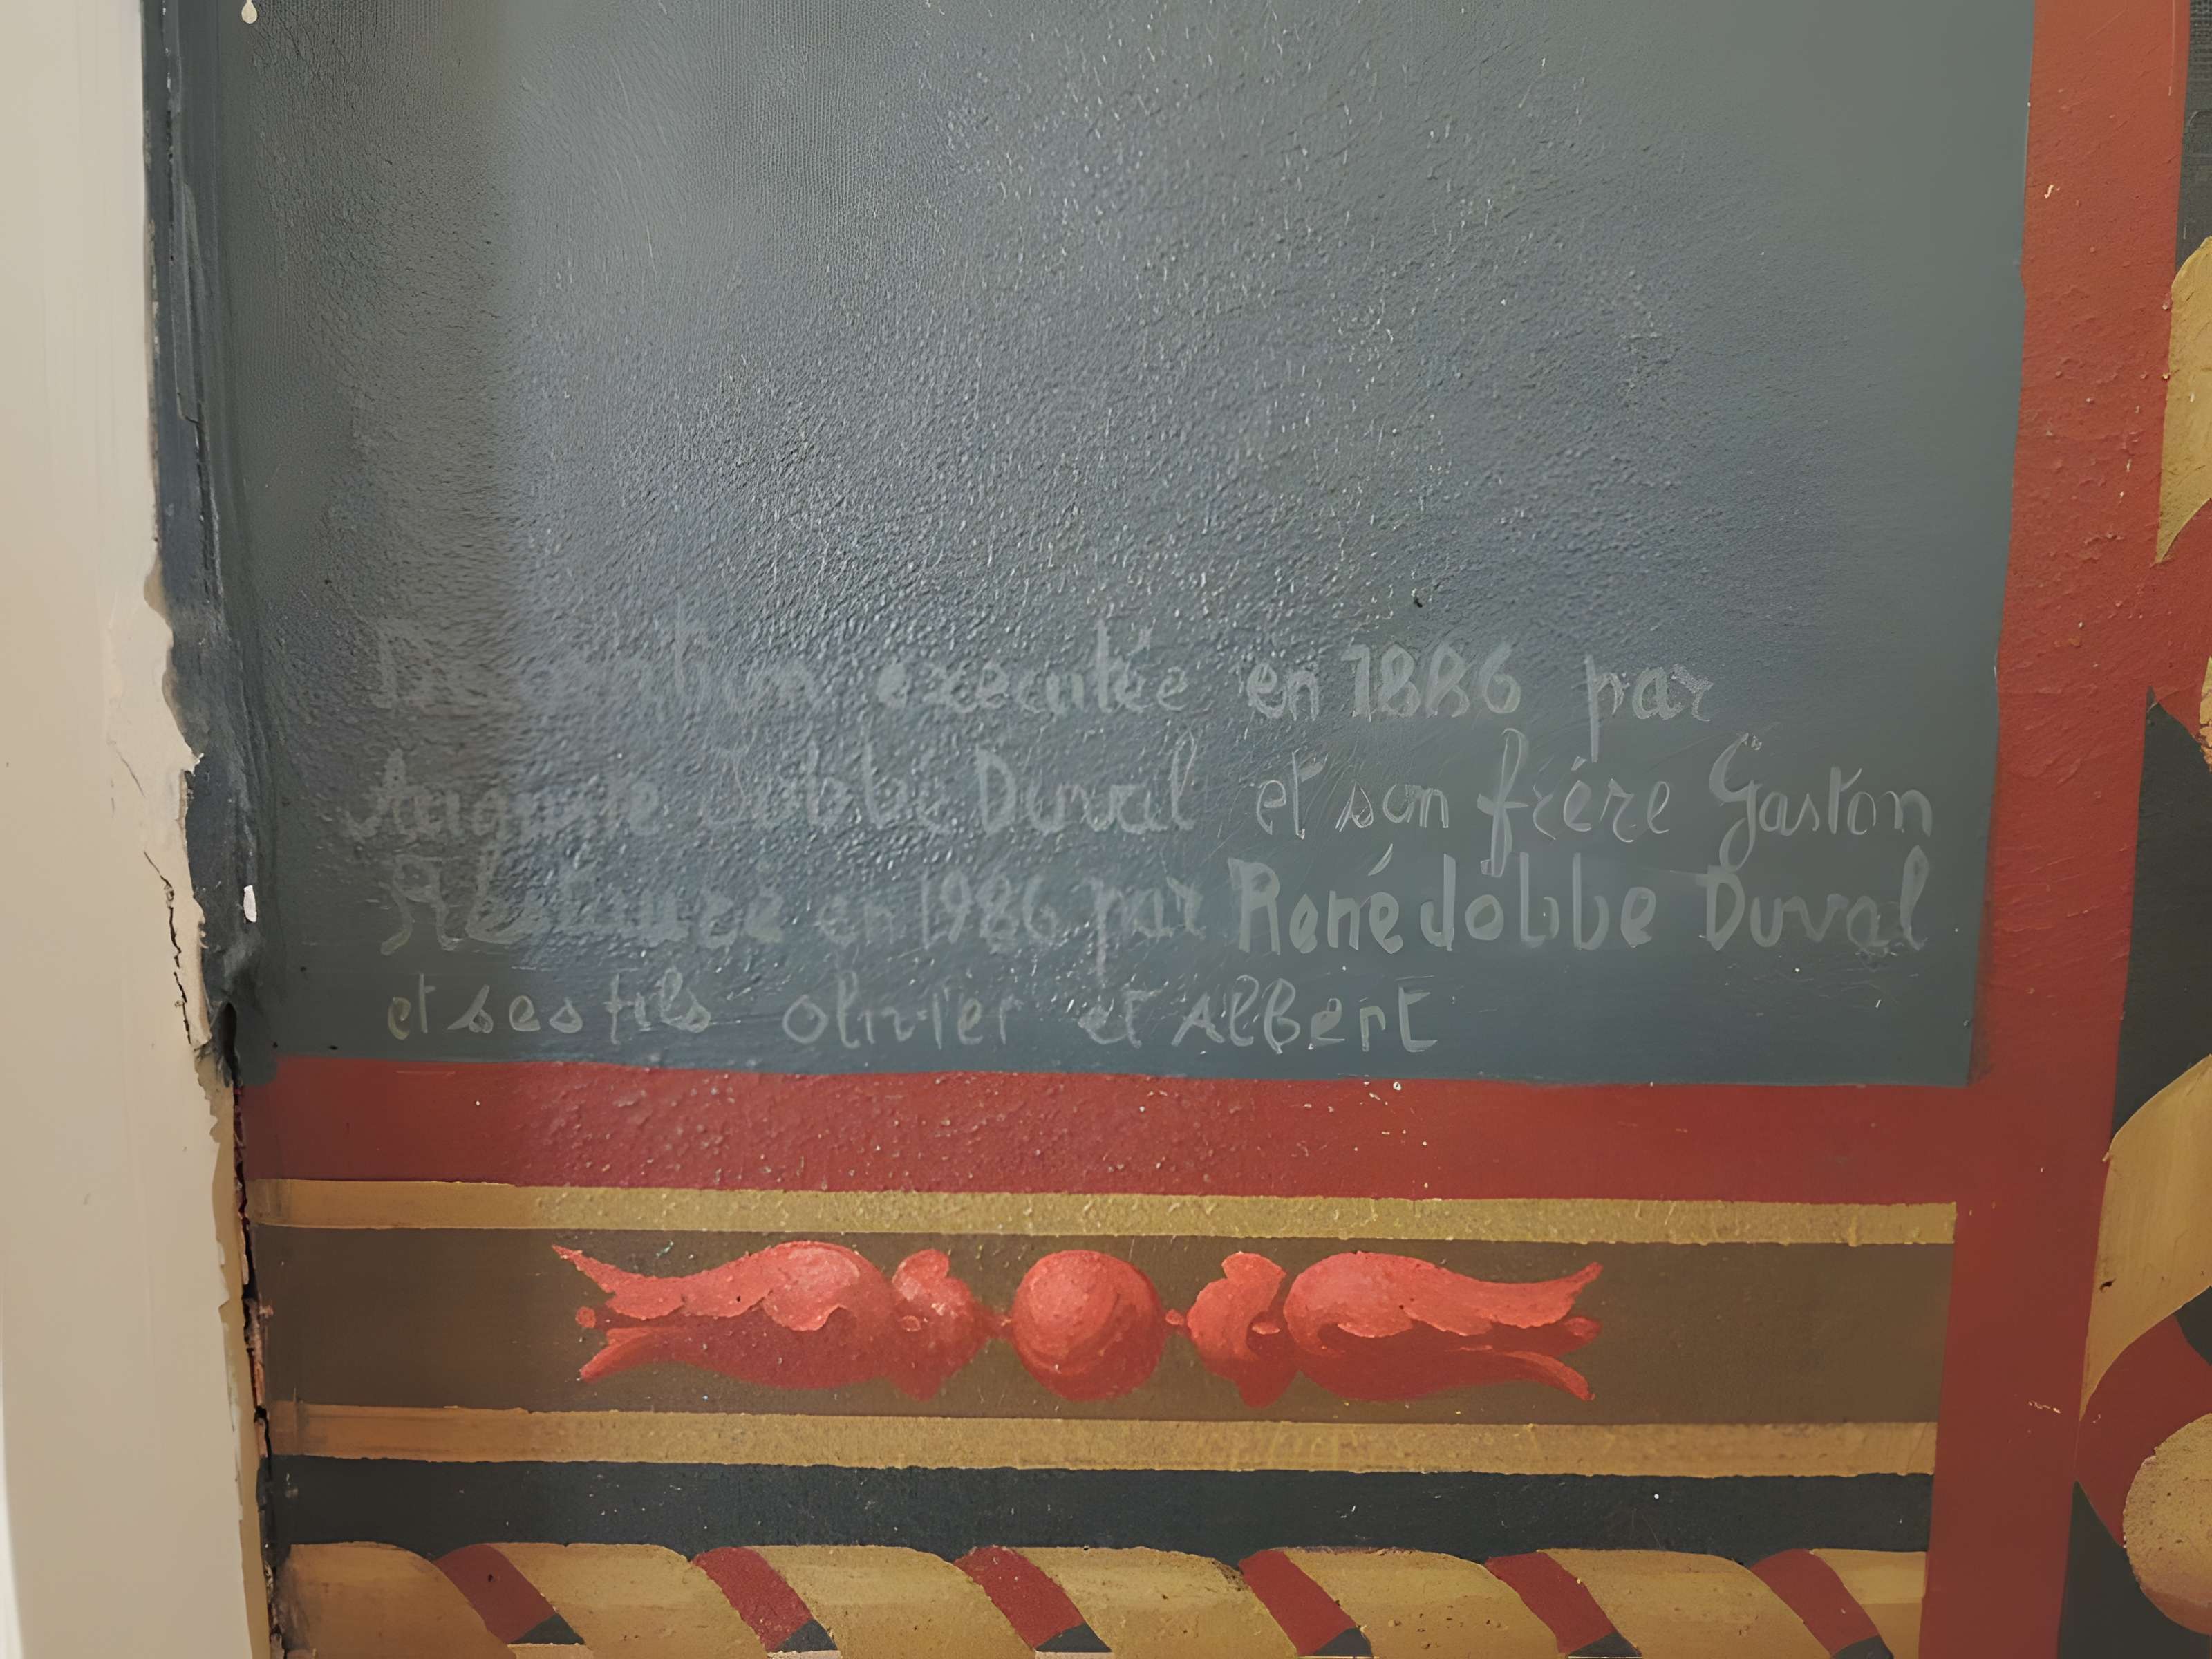 Decoration executée en 1886 par
Auguste Jobbé Duval et son frère Gaston
Restauré en 1986 par René Jobbe Duval
et ses fils Olivier et Albert